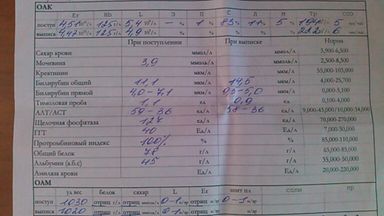 ОАК
Er Hb L Э П С Л М Тр СОЭ
поступ 4,51 125 5,4 — % 1 % 5
выписк 4,12 125 4,9
При поступлении При выписке Норма
Сахар крови ммоль/л ммоль/л 3,900-6,500
Мочевина 3,9 ммоль/л ммоль/л 2,500-8,500
Креатинин мкм/л мкм/л 55,000-105,000
Билирубин общий 11,1 мкм/л 14,5 мкм/л 4,000-25,700
Билирубин прямой мкм/л мкм/л 0,000-5,100
Тимоловая проба 1,1 ед. 0,9 ед. 0,100-4,000
АЛТ/АСТ Ед/л Ед/л
Щелочная фосфатаза 127 Ед/л Ед/л 70,000-270,000
ГГТ 40 Ед/л Ед/л 7,000-50,000
Протромбиновый индекс 100% % % 85,000-110,000
Общий белок 78 г/л г/л 65,000-85,000
Альбумин (а.б.с) 45 г/л г/л 35,000-50,000
Амилаза крови Ед/л Ед/л 20,000-220,000
ОАМ
уд вес белок сахар L Er эпит пл соли пр
поступ 1030 отриц г/л отриц 0-1 отриц 0-1
выписк 1020 отриц г/л отриц 0-1 отриц